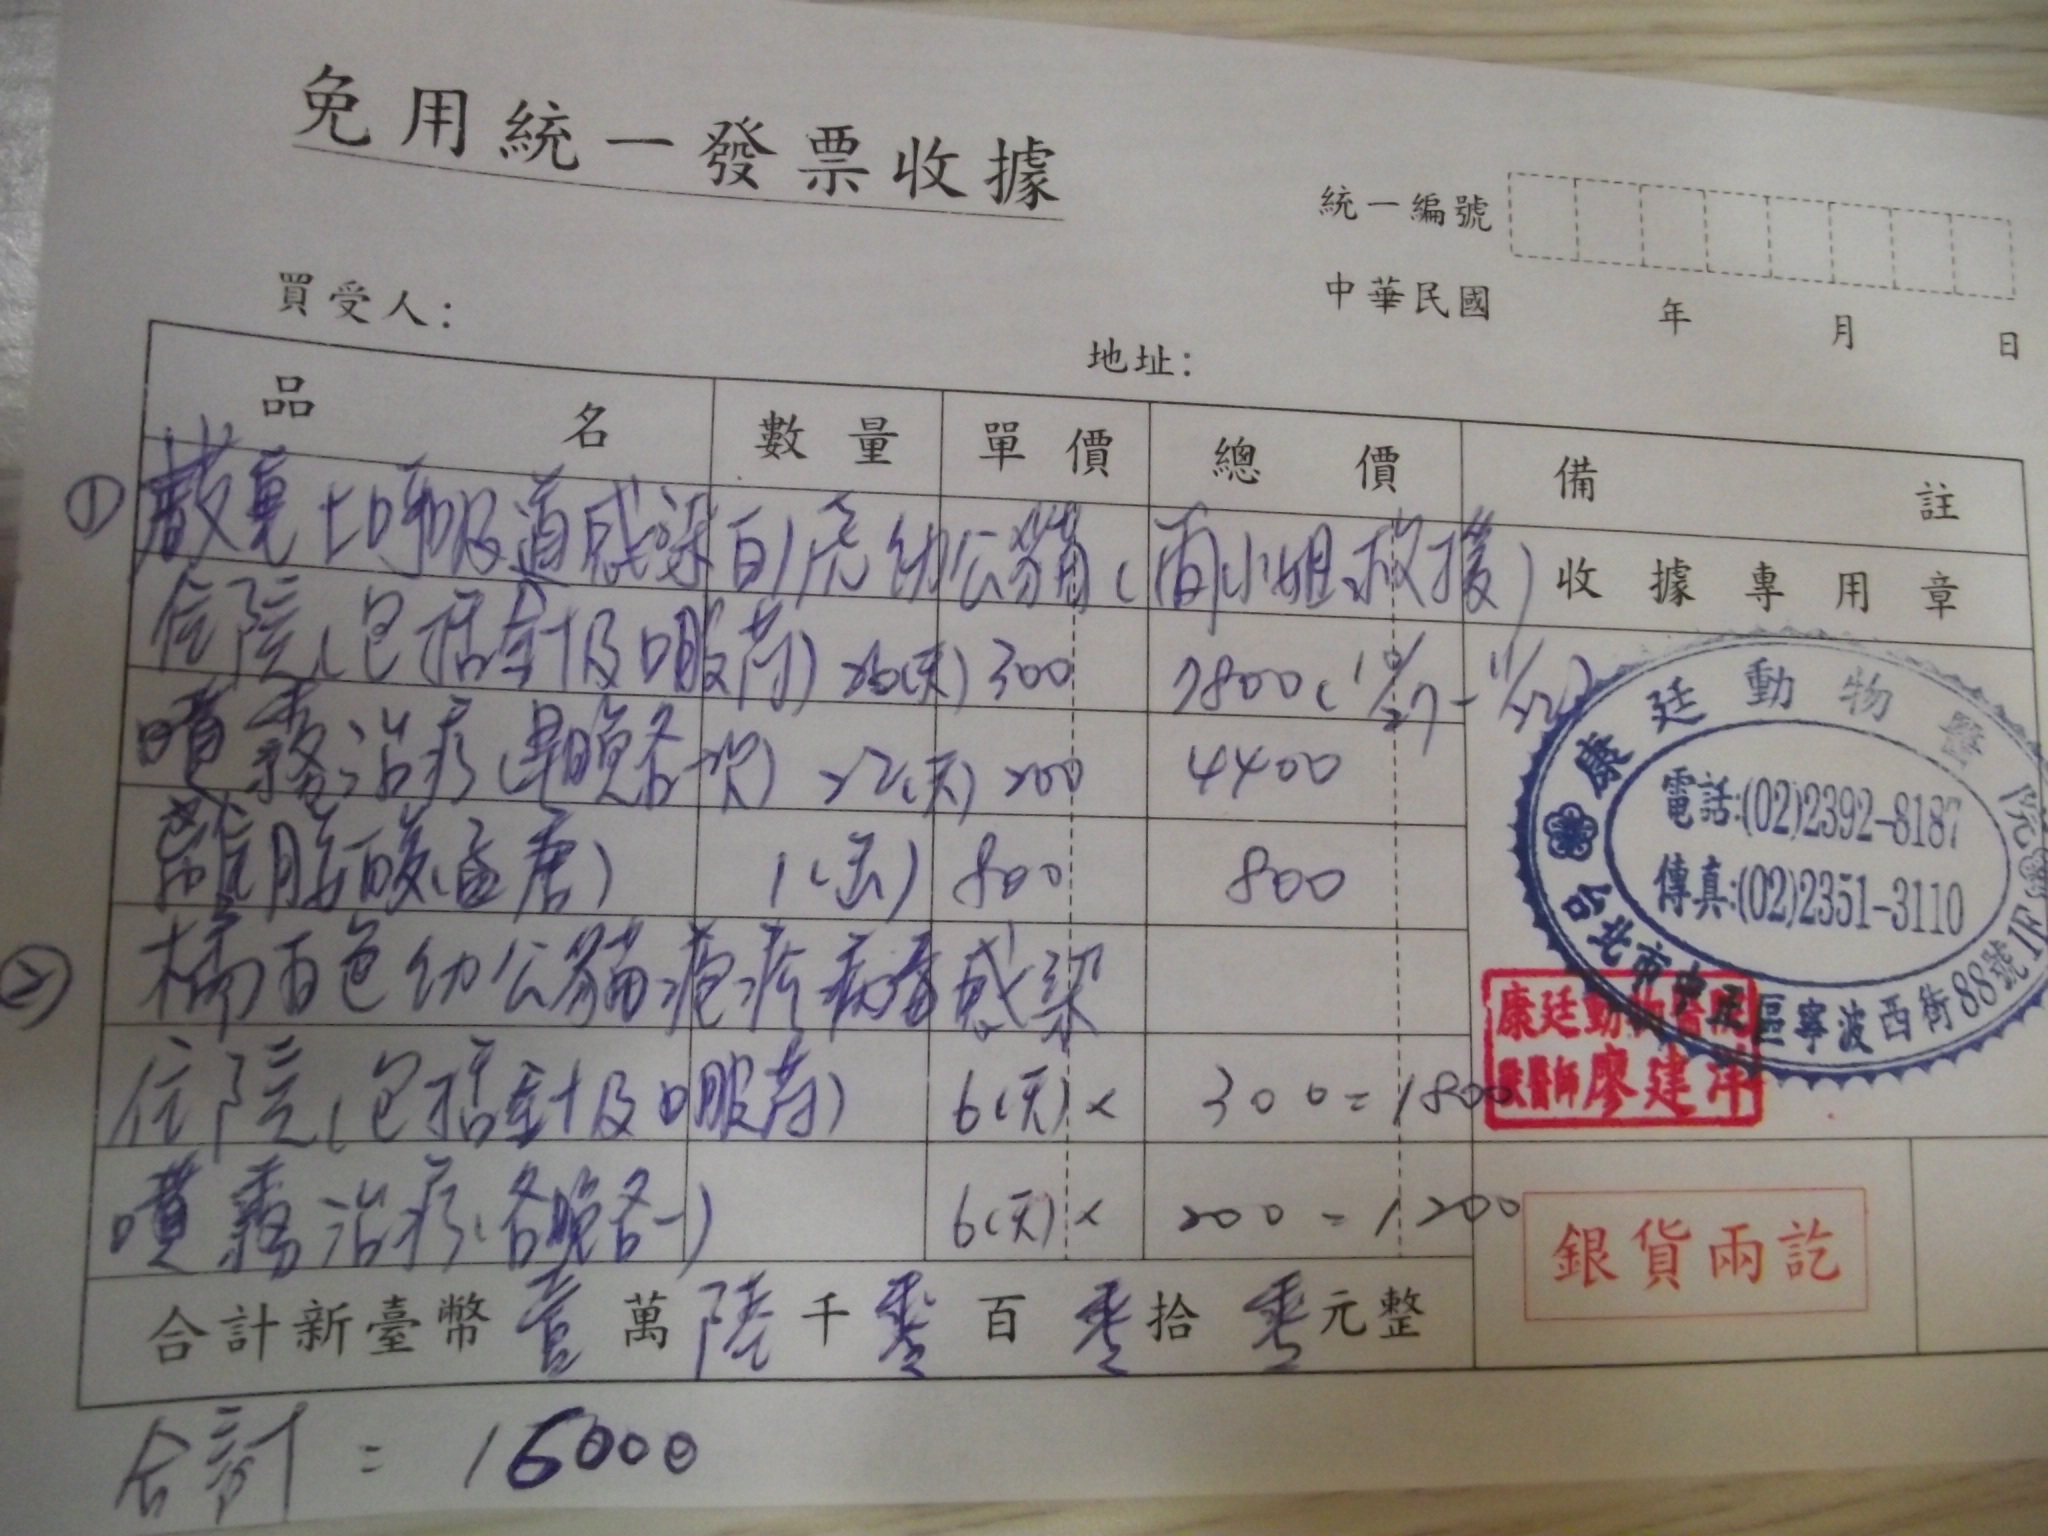 免用統一發票收據
統一編號
中華民國 年 月 日
買受人:
地址:
品 名 數 量 單 價 總 價 備 註
① 上呼吸道感染白 虎幼公貓(雨小姐救援)
收據專用章
住院(包括針及口服药) 26(天) 300 7800(10/27-11/22)
噴霧治疗(早晚各一次) 22(天) 200 4400
800 800
② 橘白色幼公貓疱疹病毒感染
住院(包括針及口服药) 6(天)× 300=1800
噴霧治疗(各晚各一) 6(天)× 200=1200
合計新臺幣壹萬陸千零百零拾零元整
合計=16000
康廷動物醫院
電話:(02)2392-8187
傳真:(02)2351-3110
台北市中正區寧波西街88號1F
康廷動物醫院
獸醫師廖建
銀貨兩訖